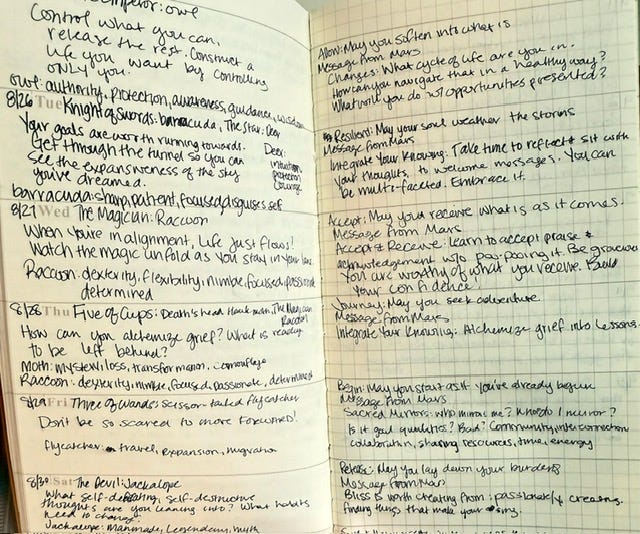 Emperor: owl
Control what you can,
release the rest. Construct a
life you want by controlling
ONLY you.
owl: authority, protection, awareness, guidance, wisdom
8/26 Tue Knight of Swords: barracuda, The Star: Deer
Your goals are worth running towards.
Get through the tunnel so you can
see the expansiveness of the sky
you've dreamed.
Deer:
intuition
protection
courage
barracuda: sharp, patient, focused, disguises self
8/27 Wed The Magician: Raccoon
When you're in alignment, life just flows!
Watch the magic unfold as you stay in your lane.
Raccoon: dexterity, flexibility, nimble, focused, passionate
determined
8/28 Thu Five of Cups: Death's head Hawk moth, The Magician
Raccoon
How can you alchemize grief? What is ready
to be left behind?
Moth: mystery, loss, transformation, camouflage
Raccoon: dexterity, nimble, focused, passionate, determined
8/29 Fri Three of Wands: Scissor-tailed flycatcher
Don't be so scared to move forward!
flycatcher: travel, expansion, migration
8/30 Sat The Devil: Jackalope
What self-defeating, self-destructive
thoughts are you leaning into? What habits
need to change?
Jackalope: manmade, legendary, myth
Allow: May you soften into what is
Message from Mars
Changes: What cycle of life are you in.
How can you navigate that in a healthy way?
What will you do w/ opportunities presented?
Resilient: May your soul weather the storms
Message from Mars
Integrate Your Knowing: Take time to reflect & sit with
your thoughts, to welcome messages. You can
be multi-faceted. Embrace it.
Accept: May you receive what is as it comes.
Message from Mars
Accept & Receive: Learn to accept praise &
acknowledgement w/o pooping it. Be gracious
You are worthy of what you receive. Build
your confidence!
Journey: May you seek adventure.
Message from Mars
Integrate Your Knowing: Alchemize grief into lessons.
Begin: May you start as if you've already begun
Message from Mars
Sacred Mirrors: Who mirrors me? Who do I mirror?
Is it good qualities? Bad? Community, interconnection
collaboration, sharing resources, time, energy
Release: May you lay down your burdens
Message from Mars
Bliss is worth creating from: passionately creating.
finding things that make your sing.